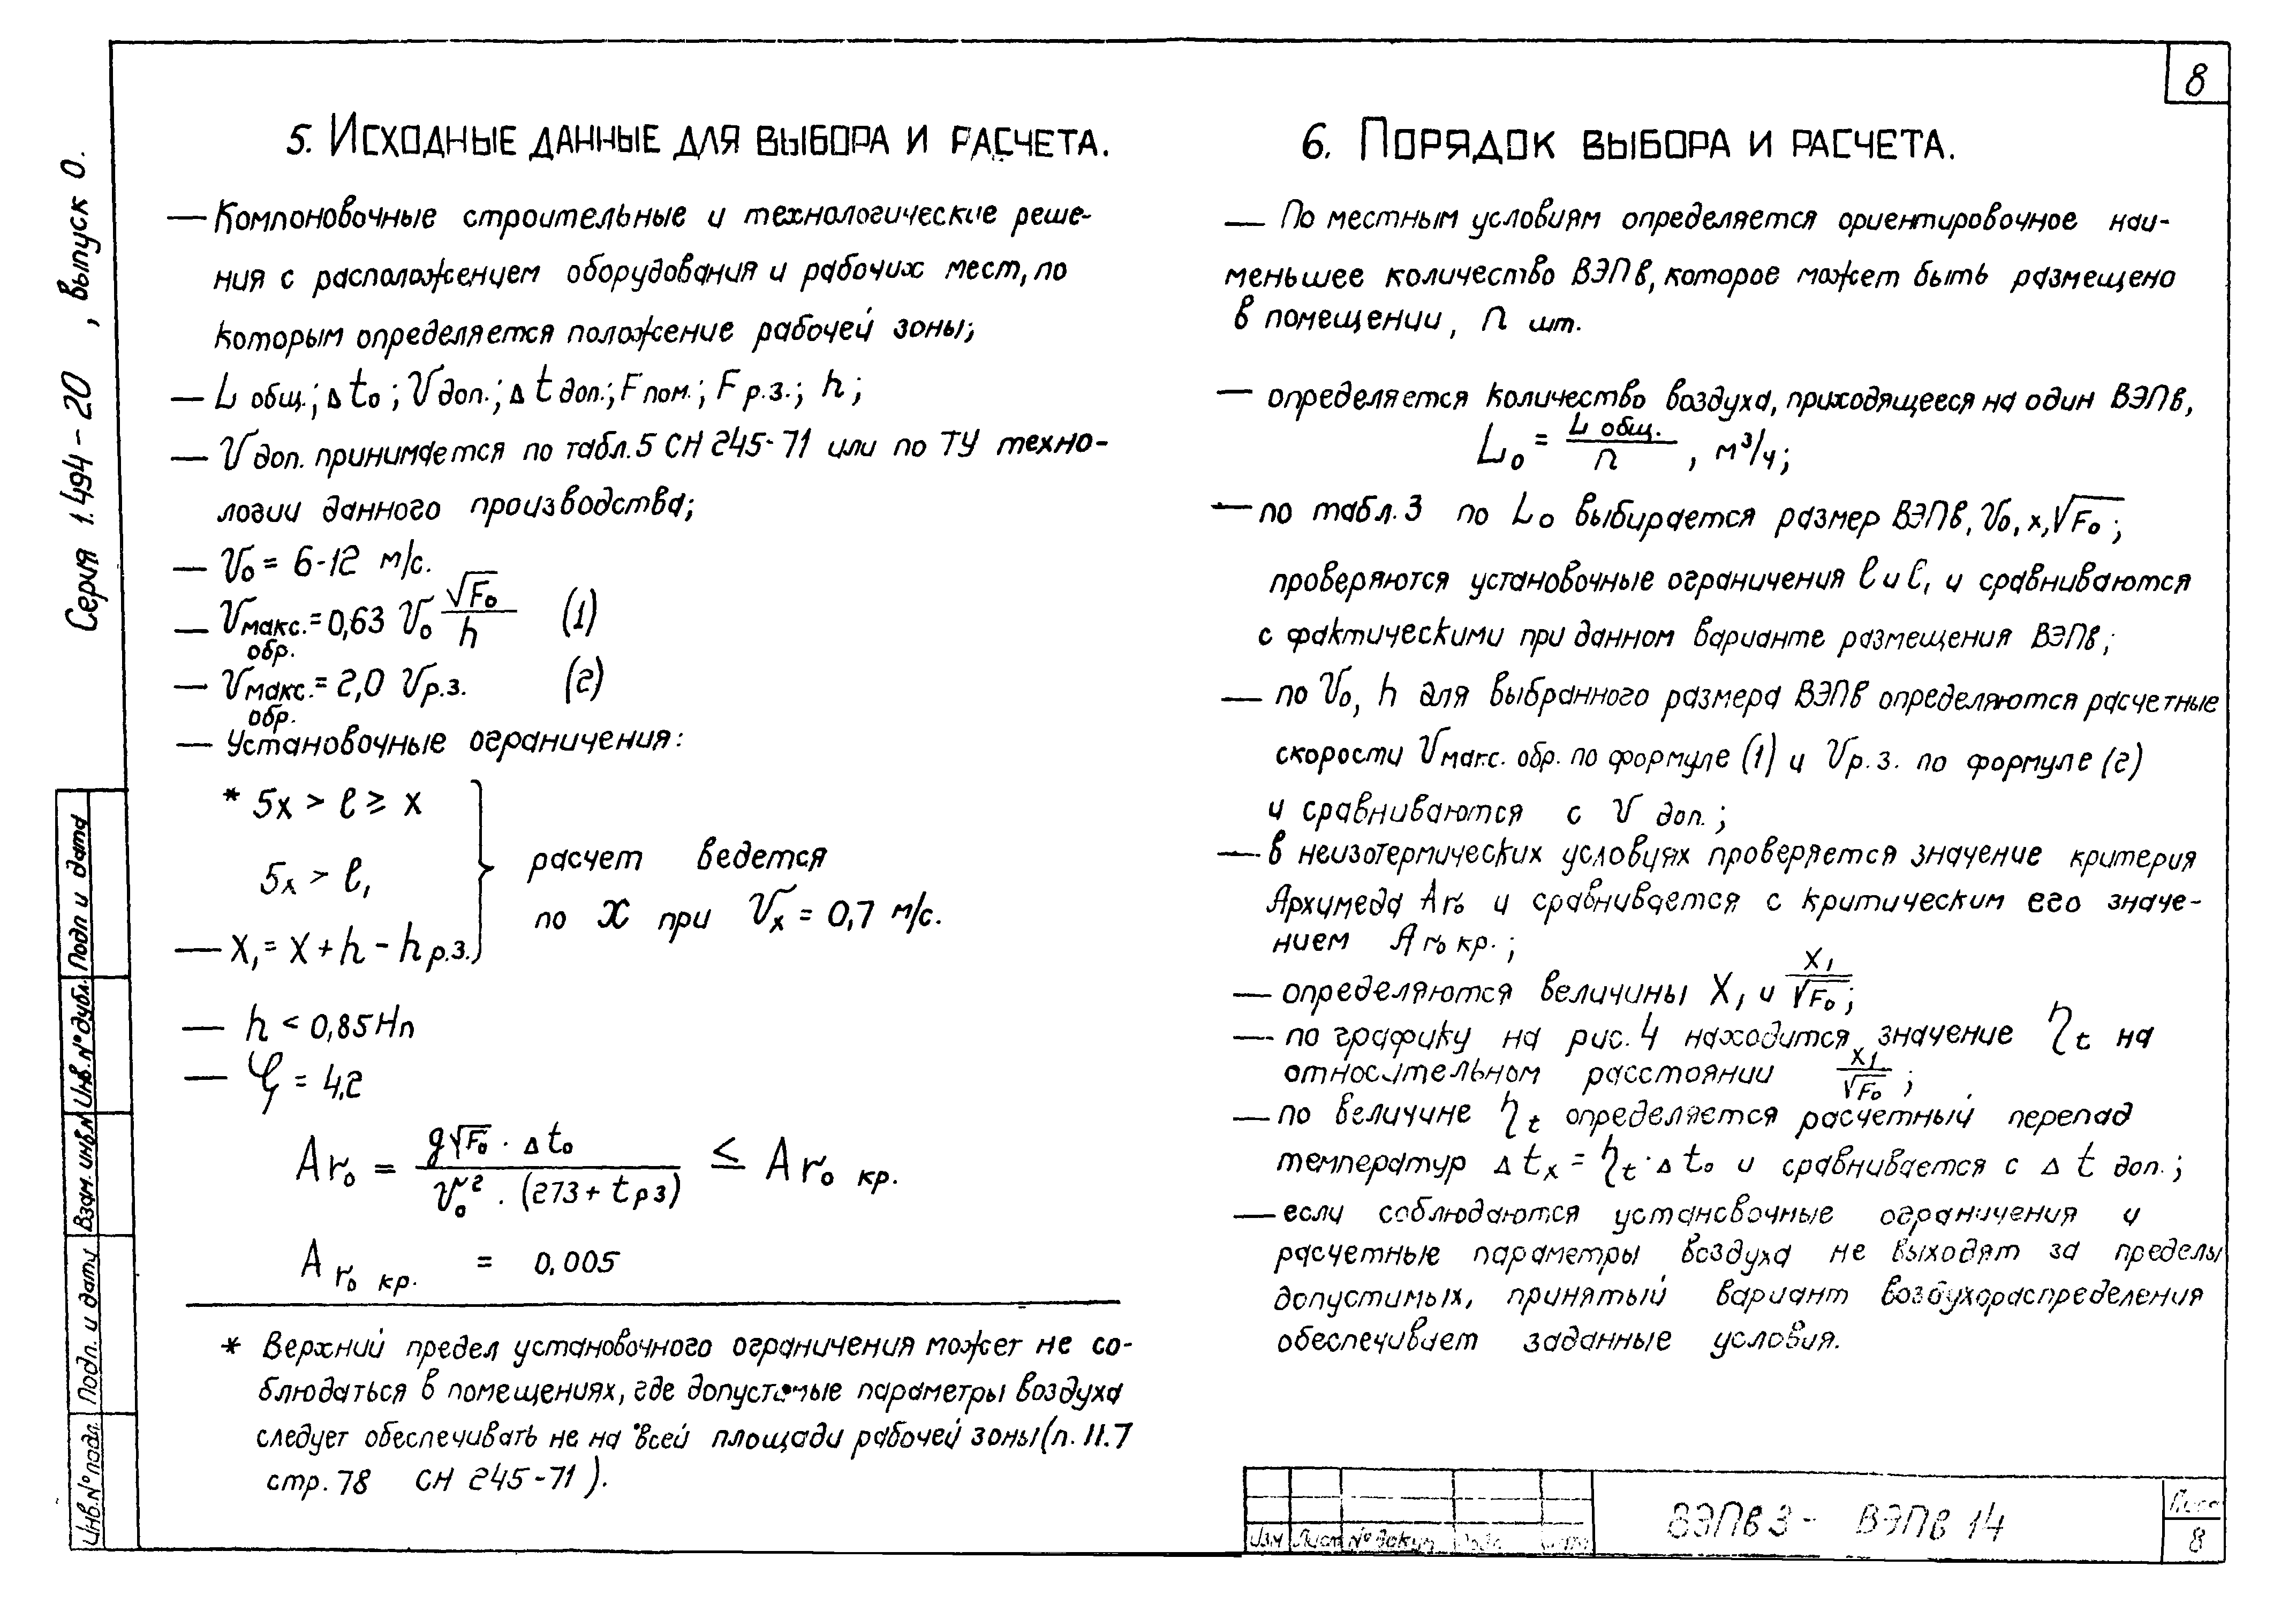 8
5. ИСХОДНЫЕ ДАННЫЕ ДЛЯ ВЫБОРА И РАСЧЕТА.
— Компоновочные строительные и технологические реше-
ния с расположением оборудования и рабочих мест, по
которым определяется положение рабочей зоны;
— L общ.; Δt₀; V доп.; Δt доп.; F пом.; F р.з.; h;
— V доп. принимается по табл.5 СН 245-71 или по ТУ техно-
логии данного производства;
— V₀ = 6-12 м/с.
— Vмакс. обр. = 0,63 V₀ √F₀ / h (1)
— Vмакс. обр. = 2,0 Vр.з. (2)
— Установочные ограничения:
* 5x > ℓ ≥ x
5x > ℓ₁
расчет ведется
по x при Vx = 0,7 м/с.
— X₁ = X + h - h р.з.
— h < 0,85Hп
— φ = 4,2
Ar₀ = g√F₀ · Δt₀ / V₀² · (273 + t рз) ≤ Ar₀ кр.
Ar₀ кр. = 0,005
* Верхний предел установочного ограничения может не со-
блюдаться в помещениях, где допустимые параметры воздуха
следует обеспечивать не на всей площади рабочей зоны (п. 11.7
стр. 78 СН 245-71).
6. ПОРЯДОК ВЫБОРА И РАСЧЕТА.
— По местным условиям определяется ориентировочное наи-
меньшее количество ВЭПв, которое может быть размещено
в помещении, n шт.
— определяется количество воздуха, приходящееся на один ВЭПв,
L₀ = L общ. / n , м³/ч;
— по табл.3 по L₀ выбирается размер ВЭПв, V₀, x, √F₀;
проверяются установочные ограничения ℓ и ℓ₁ и сравниваются
с фактическими при данном варианте размещения ВЭПв;
— по V₀, h для выбранного размера ВЭПв определяются расчетные
скорости Vмакс. обр. по формуле (1) и Vр.з. по формуле (2)
и сравниваются с V доп.;
— в неизотермических условиях проверяется значение критерия
Архимеда Ar₀ и сравнивается с критическим его значе-
нием Ar₀ кр.;
— определяются величины X₁ и X₁/√F₀;
— по графику на рис. 4 находится значение ηt на
относительном расстоянии X₁/√F₀;
— по величине ηt определяется расчетный перепад
температур Δtx = ηt · Δt₀ и сравнивается с Δt доп.;
— если соблюдаются установочные ограничения и
расчетные параметры воздуха не выходят за пределы
допустимых, принятый вариант воздухораспределения
обеспечивает заданные условия.
Серия 1.494-20 , выпуск 0.
Подп и дата
Инв.№дубл.
Взам. инв.№
Подп. и дата
Инв.№подл.
Изм Лист №докум
ВЭПв 3 - ВЭПв 14
Лист
8